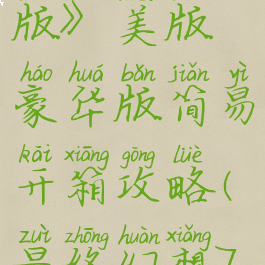 版》 美版
háo huá bǎn jiǎn yì
豪华版简易
kāi xiāng gōng lüè
开箱攻略(
zuì zhōng huàn xiǎng
最终幻想7